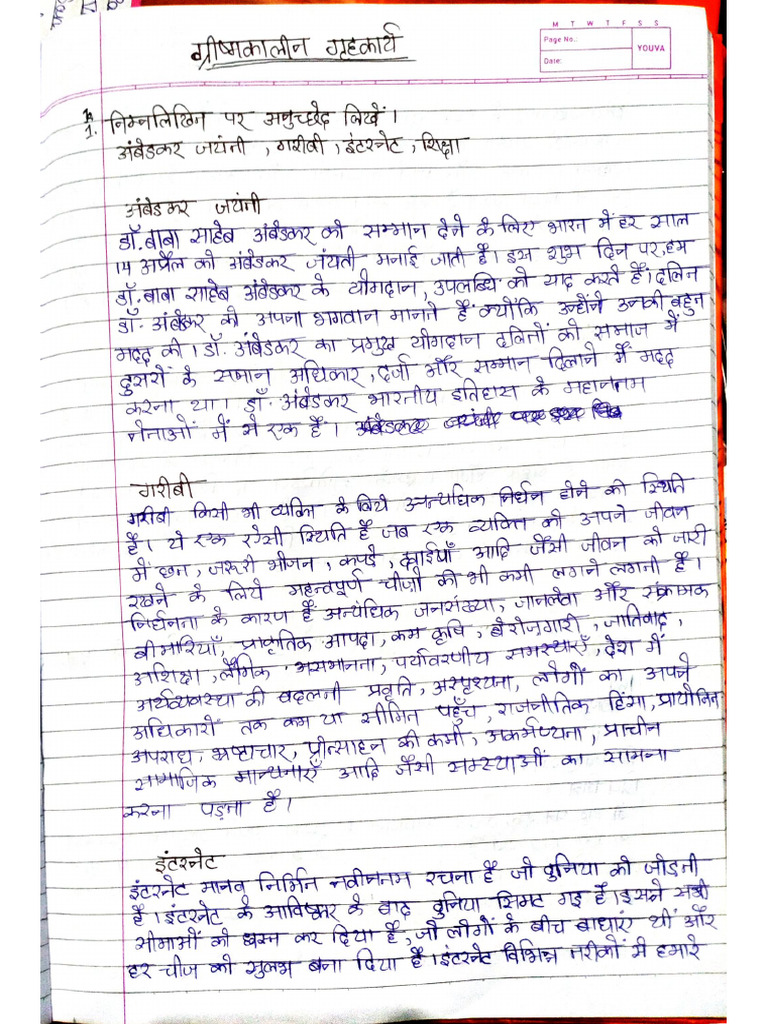 M T W T F S S
Page No.:
Date:
YOUVA
ग्रीष्मकालीन गृहकार्य
1. निम्नलिखित पर अनुच्छेद लिखें।
अंबेडकर जयंती, गरीबी, इंटरनेट, शिक्षा
अंबेडकर जयंती
डॉ. बाबा साहेब अंबेडकर को सम्मान देने के लिए भारत में हर साल
14 अप्रैल को अंबेडकर जंयती मनाई जाती है। इस शुभ दिन पर, हम
डॉ. बाबा साहेब अंबेडकर के योगदान, उपलब्धि को याद करते हैं। दलित
डॉ. अंबेडकर को अपना भगवान मानते हैं क्योंकि उन्होंने उनकी बहुत
मदद की। डॉ. अंबेडकर का प्रमुख योगदान दलितों को समाज में
दुसरों के समान अधिकार, दर्जा और सम्मान दिलाने में मदद
करना था। डॉ. अंबेडकर भारतीय इतिहास के महानतम
नेताओं में से एक हैं।
गरीबी
गरीबी किसी भी व्यक्ति के लिये अत्यधिक निर्धन होने की स्थिति
है। ये एक ऐसी स्थिति है जब एक व्यक्ति को अपने जीवन
में छत, जरुरी भोजन, कपड़े, दवाईयाँ आदि जैसी जीवन को जारी
रखने के लिये महत्वपूर्ण चीज़ों की भी कमी लगने लगती है।
निर्धनता के कारण हैं अत्यधिक जनसंख्या, जानलेवा और संक्रामक
बीमारियाँ, प्राकृतिक आपदा, कम कृषि, बेरोज़गारी, जातिवाद,
अशिक्षा, लैंगिक असमानता, पर्यावरणीय समस्याएँ, देश में
अर्थव्यवस्था की बदलती प्रवृति, अस्पृश्यता, लोगों का अपने
अधिकारों तक कम या सीमित पहुँच, राजनीतिक हिंसा, प्रायोजित
अपराध, भ्रष्टाचार, प्रोत्साहन की कमी, अकर्मण्यता, प्राचीन
सामाजिक मान्यताएँ आदि जैसी समस्याओं का सामना
करना पड़ता है।
इंटरनेट
इंटरनेट मानव निर्मित नवीनतम रचना है जो दुनिया को जोड़ती
है। इंटरनेट के आविष्कार के बाद दुनिया सिमट गइ है। इसने सभी
सीमाओं को खत्म कर दिया है, जो लोगों के बीच बाधाएं थीं और
हर चीज को सुलभ बना दिया है। इंटरनेट विभिन्न तरीकों से हमारे